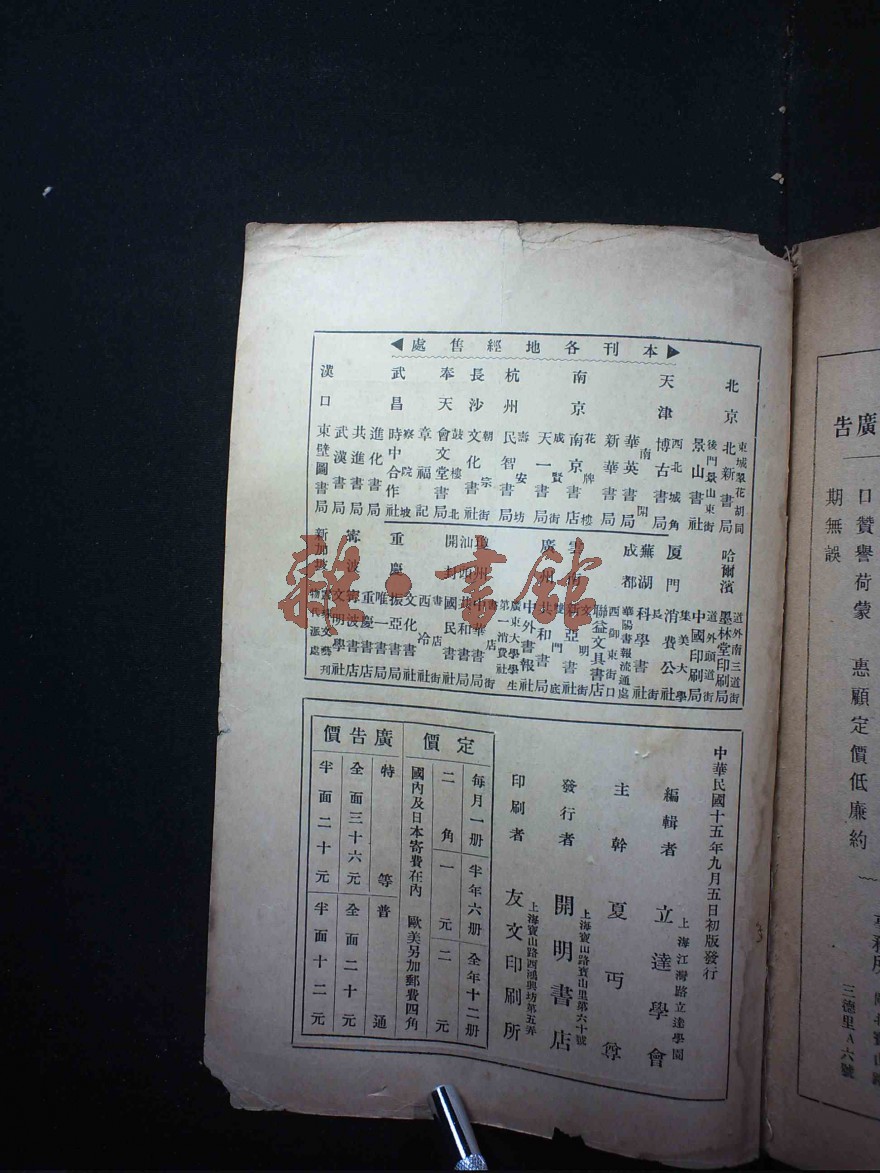 本刊各地經售處
北京
東城翠花胡同
北新書局
後門景山東街
景山書社
天津
西北城角
博古書局
南開
華英書局
新華書局
南京
花牌樓
南京書店
成賢街
天一書局
杭州
壽安坊
民智書局
長沙
朝宗街
文化書社
奉天
鼓樓北
會文堂書局
章福記
武昌
察院坡
時中合作社
進化書局
共進書局
武漢書局
漢口
東壁圖書局
哈爾濱
道外南三道街
墨林堂印刷局
道外頭道街
中國印刷局
廈門
集美大學
消費公社
蕪湖
長街
科學書社
成都
華陽書報流通處
西御東街口
聯益文具書店
雲南
文明街
新亞書社
廣州
雙門底
共和書局
中外書報社
廣東大學學生
第一消費社
書店街
中華書局
汕頭
共和書局
開封
書店街
國民書社
西冷
文化書社
重慶
振亞書局
唯一書局
重慶書店
寧波
寧波書店
文明學社
新加坡
中華民國十五年九月五日初版發行
編輯者
上海江灣路立達學園
立達學會
主幹
夏丏尊
發行者
上海寶山路寶山里第六十號
開明書店
印刷者
上海寶山路西鴻興坊第五弄
友文印刷所
定價
每月一册
半年六册
全年十二册
二角
一元
二元
國內及日本寄費在內 歐美另加郵費四角
廣告價
特等
普通
全面三十六元
全面二十元
半面二十元
半面十二元
廣告
口贊譽荷蒙 惠顧定價低廉約
期無誤
三德里A六號
雜·書館